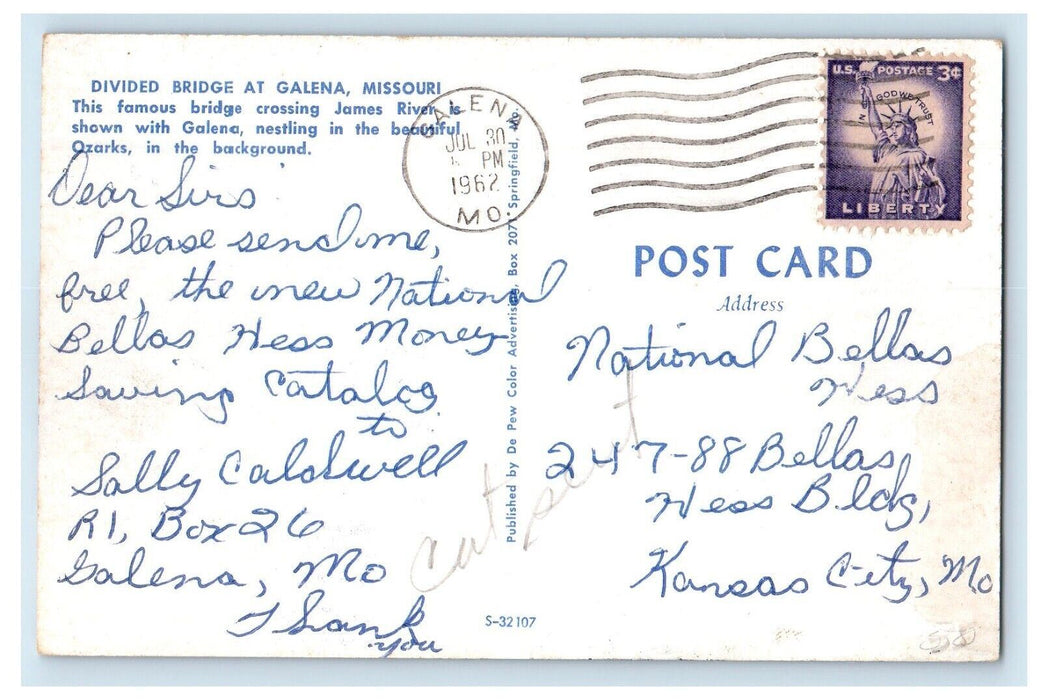 DIVIDED BRIDGE AT GALENA, MISSOURI
This famous bridge crossing James River is
shown with Galena, nestling in the beautiful
Ozarks, in the background.
Dear Sirs
Please send me,
free, the new National
Bellas Hess Money
Saving Catalog
to
Sally Caldwell
R1, Box 26
Galena, Mo
Thank
you
Published by De Pew Color Advertising, Box 207, Springfield, Mo.
S-32107
cat sent
GALENA
JUL 30
PM
1962
MO.
U.S. POSTAGE 3¢
IN GOD WE TRUST
LIBERTY
POST CARD
Address
National Bellas
Hess
247-88 Bellas
Hess Bldg,
Kansas City, Mo